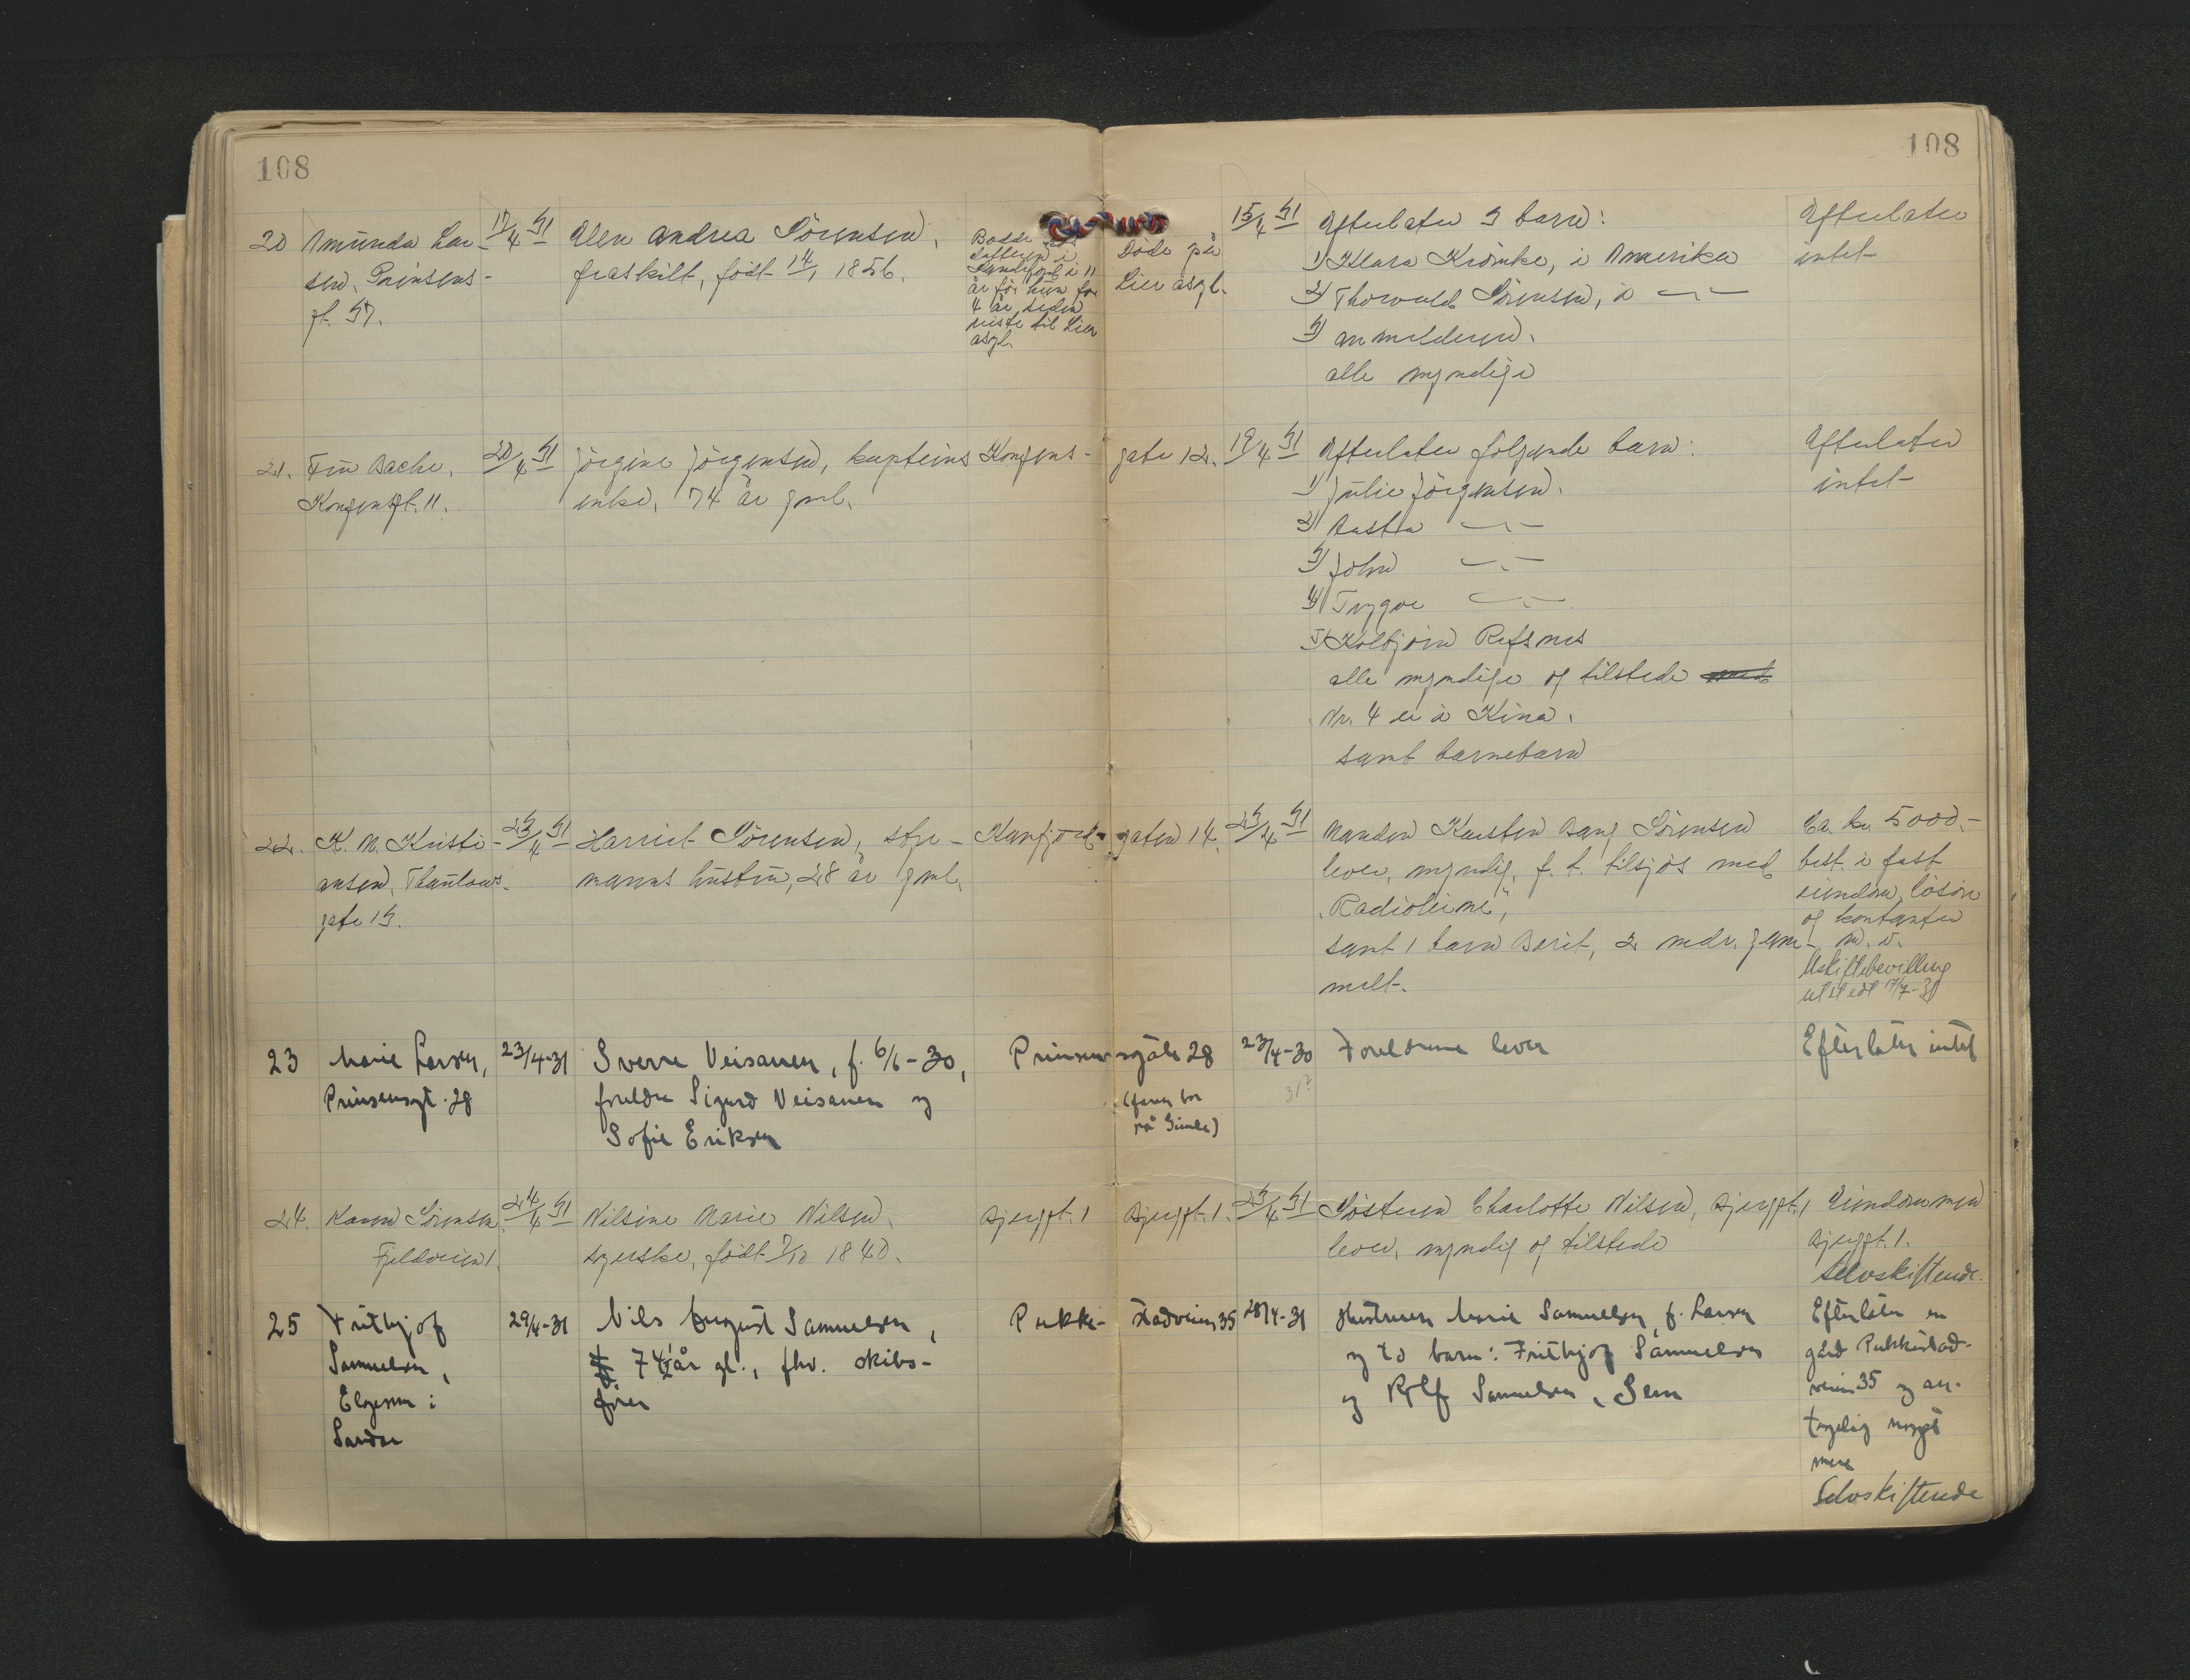 108
108
20 Amunda Lar-
sen, Prinsens-
gt. 37.
17/4 31
Olen Andrea Sörensen,
fraskilt, födt 14/1 1856.
Bodde hos
datteren i
Sandefjord i 11
år för hun for
4 år siden
reiste til Lier
asyl.
Döde på
Lier asyl.
15/4 31
Efterlater 3 barn:
1) Klara Krömke, i Amerika
2) Thorvald Sörensen, i —"—
3) anmelderen.
alle myndige
Efterlater
intet
21. Finn Bache,
Kongensgt. 11.
20/4 31
Jörgine Jörgensen, kapteins
enke, 74 år gml.
Kongens-
gate 12.
19/4 31
Efterlater fölgende barn:
1) Julie Jörgensen.
2) Aasta —"—
3) John —"—
4) Trygve —"—
5) Kolbjörn Refsnes
alle myndige og tilstede
Nr. 4 er i Kina.
samt barnebarn
Efterlater
intet
22. K. M. Kristi-
ansen, Thaulows-
gate 13.
23/4 31
Harriet Sörensen, styr-
manns hustru, 28 år gml.
Kampjord-
gaten 14.
23/4 31
Manden Karsten Bang Sörensen
lever, myndig, f. t. tilsjös med
"Radioleine",
samt 1 barn Berit, 2 mdr. gam-
melt.
Ca. kr. 5000.-
best. i fast
eiendom, lösöre
og kontanter
m. v.
Uskiftebevilling
utstedt 17/7-31
23 Marie Larsen,
Prinsensgt. 28
23/4-31
Sverre Veisanen, f. 6/6-30,
foreldre Sigurd Veisanen og
Sofie Eriksen
Prinsensgate 28
(faren bor
på Gimle)
23/4-30
31?
Foreldrene lever
Efterlater intet
24. Karen Sörensen
Fjeldveien 1.
24/4 31
Nilsine Marie Nilsen,
syerske, födt 7/10 1840.
Bjerggt. 1
Bjerggt. 1.
23/4 31
Söstren Charlotte Nilsen, Bjerggt. 1
lever, myndig og tilstede
Eiendommen
Bjerggt. 1.
Selvskiftende.
25 Frithjof
Samuelsen,
Elgesem i
Sandar
29/4-31
Nils August Samuelsen,
74 1/2 år gl., fhv. skibs-
förer
Pukki-
stadveien 35
28/4-31
Hustruen Marie Samuelsen, f. Larsen
og to barn: Frithjof Samuelsen
og Rolf Samuelsen, Sem
Efterlater en
gård Pukkistad-
veien 35 og an-
tagelig noget
mere
Selvskiftende